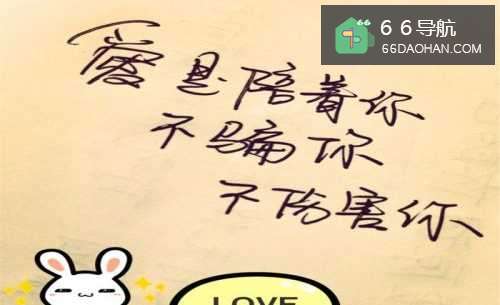 66导航
66DAOHAN.COM
爱是陪着你
不骗你
不伤害你
LOVE